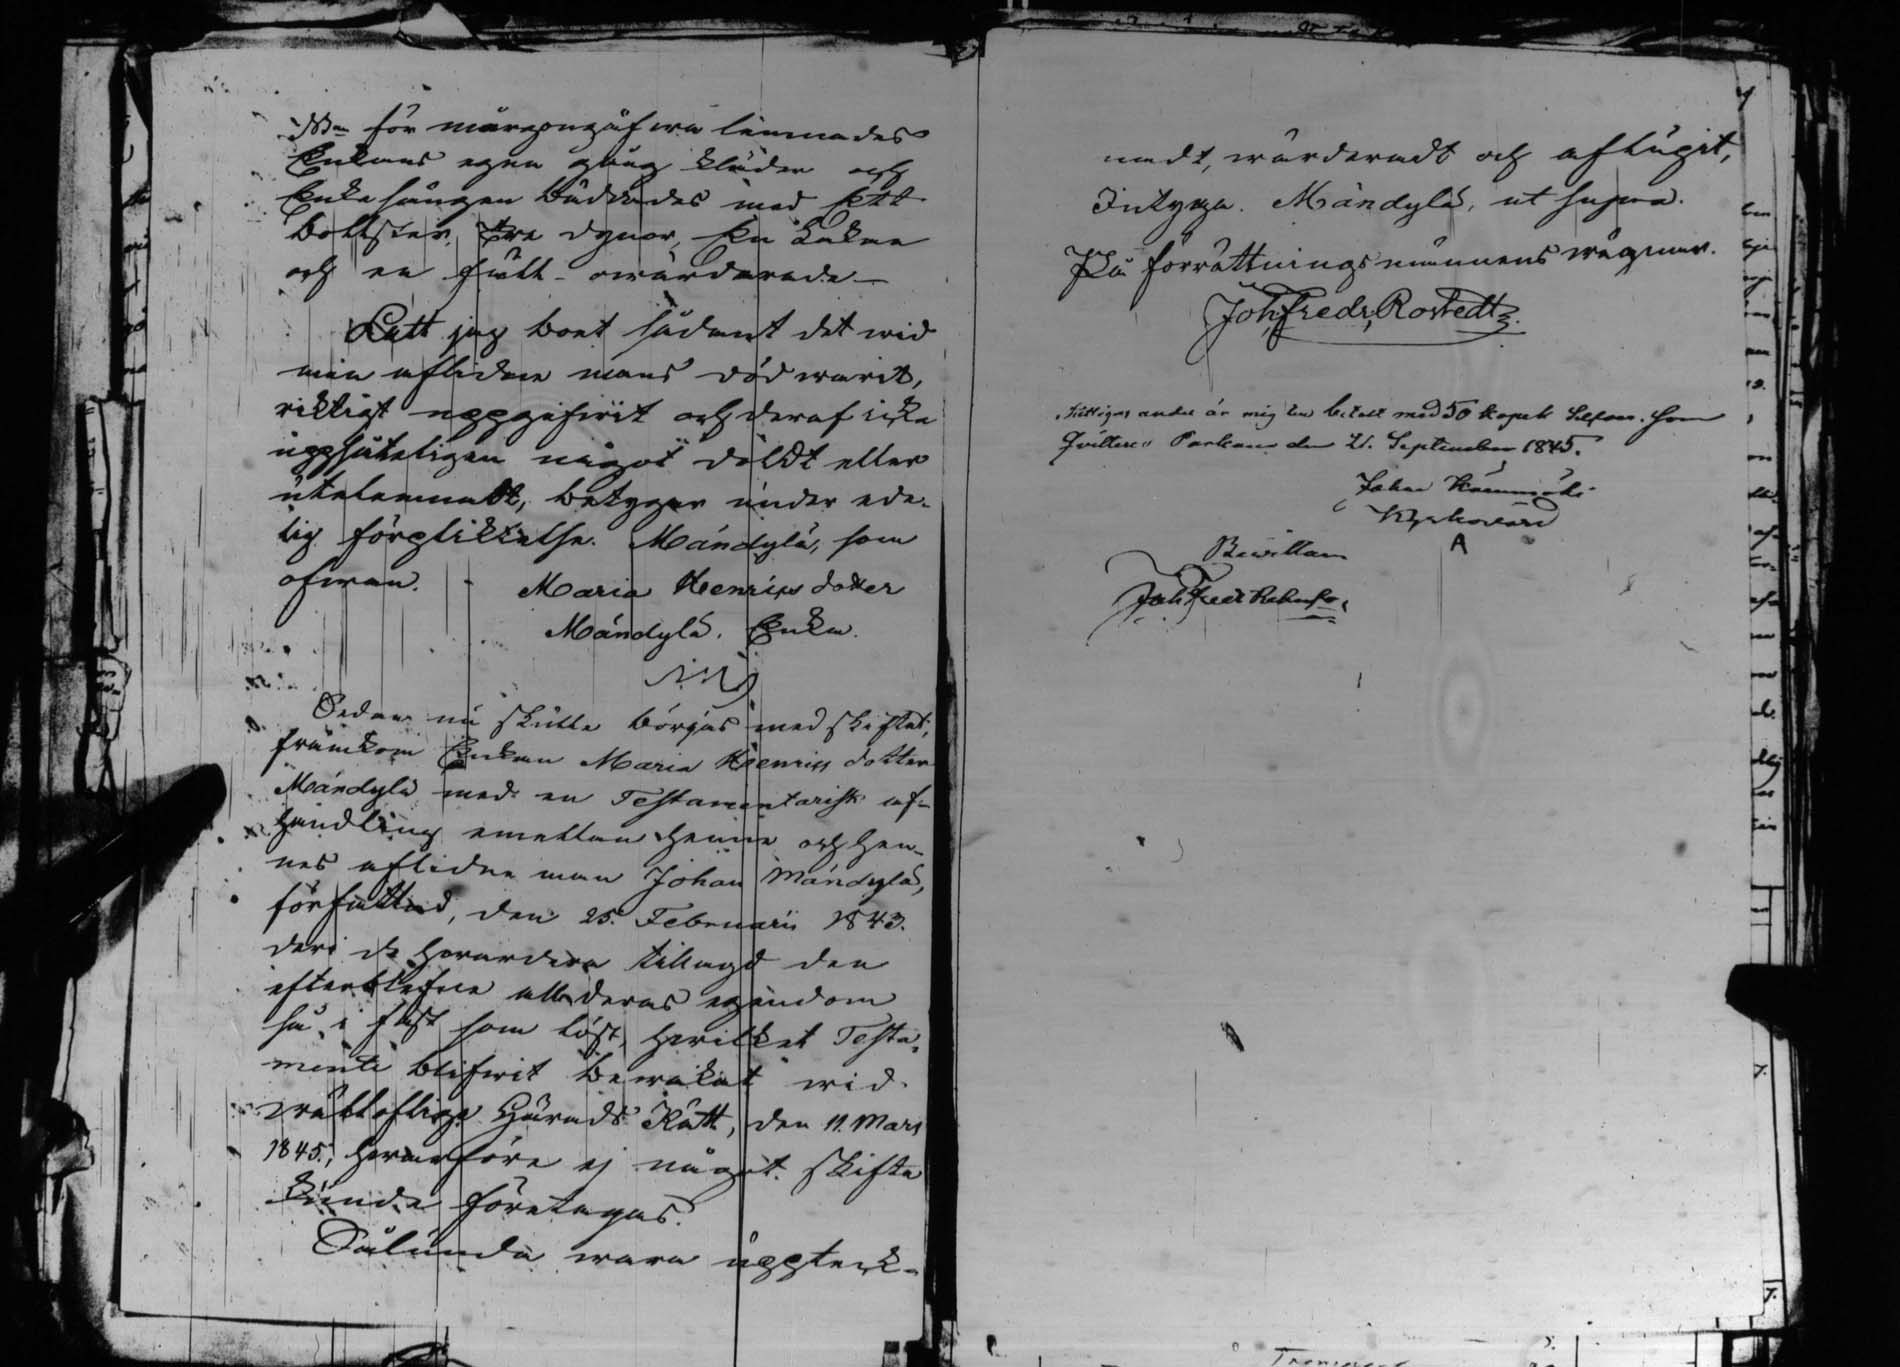 för morgongåfwa lämnades
Enkans egen gång kläder och
Enkesängen bäddades med Ett
bollster, tre dynor, En Lakan
och en fäll owärderade
Latt jag boet sådant det wid
min aflidne mans död warit,
riktigt uppgifwit och deraf icke
uppsåteligen något döldt eller
utelemnadt, betygar under ede-
lig förpliktelse. Mándylä, som
ofwan.
Maria Henrics dotter
Mándylä. Enka.
Sedan nu skulle börjas med skiftet,
framkom Enkan Maria Henrics dotter
Mándylä med en Testamentarisk af-
handling emellan henne och hen-
nes aflidne man Johan Mándylä,
författad, den 25. Februarii 1843.
deri de hwardera tillagd den
efterblefne all deras egendom
så i fast som löst, hwilket Testa-
mente blifwit bewakat wid
wällofliga Härads Rätt, den 11. Mars
1845., hwarföre ej något skifte
kunde företagas.
Sålunda wara uppteck-
nadt, wärderadt och aflagit,
Intyga. Mándylä, ut supra.
På förrättningsmännens wägnar.
Joh. Fredr. Rostedt
andel är mig betalt med 50 kopek Silfwer. som
Qvitteras Parkano den 21. September 1845.
Johan
Kyrkowärd
Bewittnar